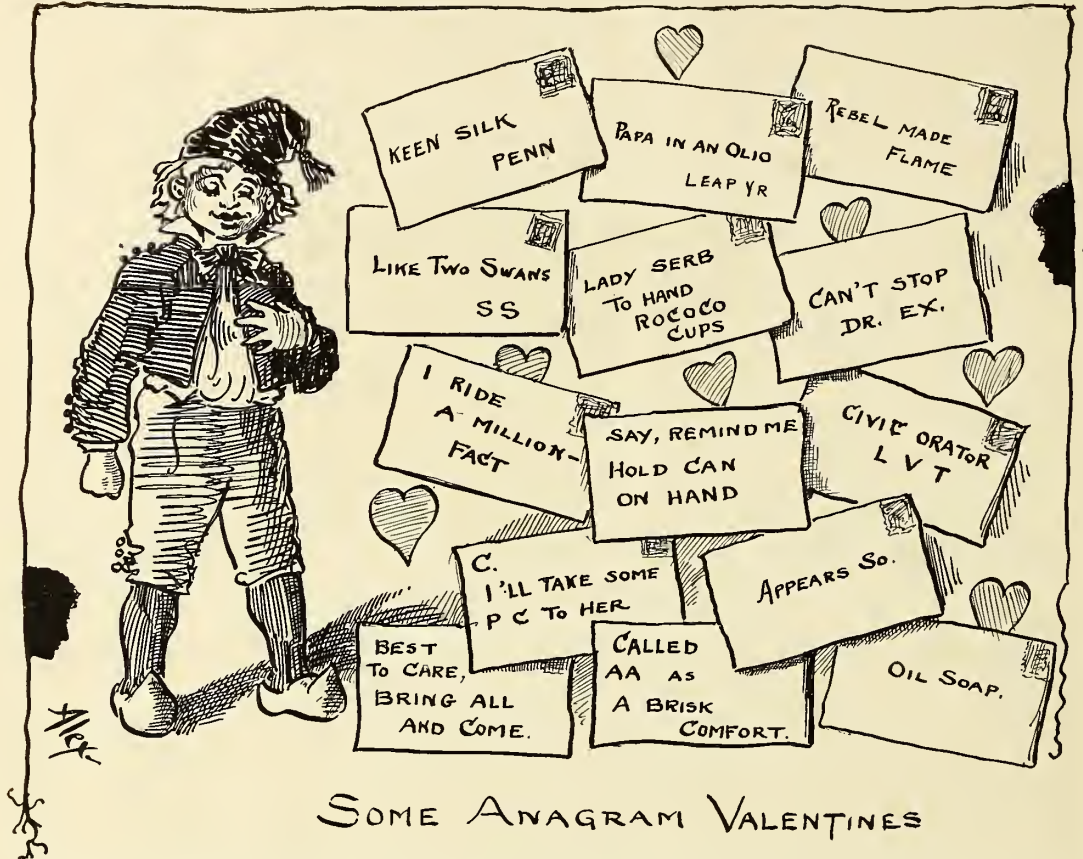 KEEN SILK
PENN
PAPA IN AN OLIO
LEAP YR
REBEL MADE
FLAME
LIKE TWO SWANS
SS
LADY SERB
TO HAND
ROCOCO
CUPS
CAN'T STOP
DR. EX.
I RIDE
A MILLION-
FACT
SAY, REMIND ME
HOLD CAN
ON HAND
CIVIC ORATOR
L V T
C.
I'LL TAKE SOME
P C TO HER
APPEARS SO.
BEST
TO CARE,
BRING ALL
AND COME.
CALLED
AA AS
A BRISK
COMFORT.
OIL SOAP.
SOME ANAGRAM VALENTINES